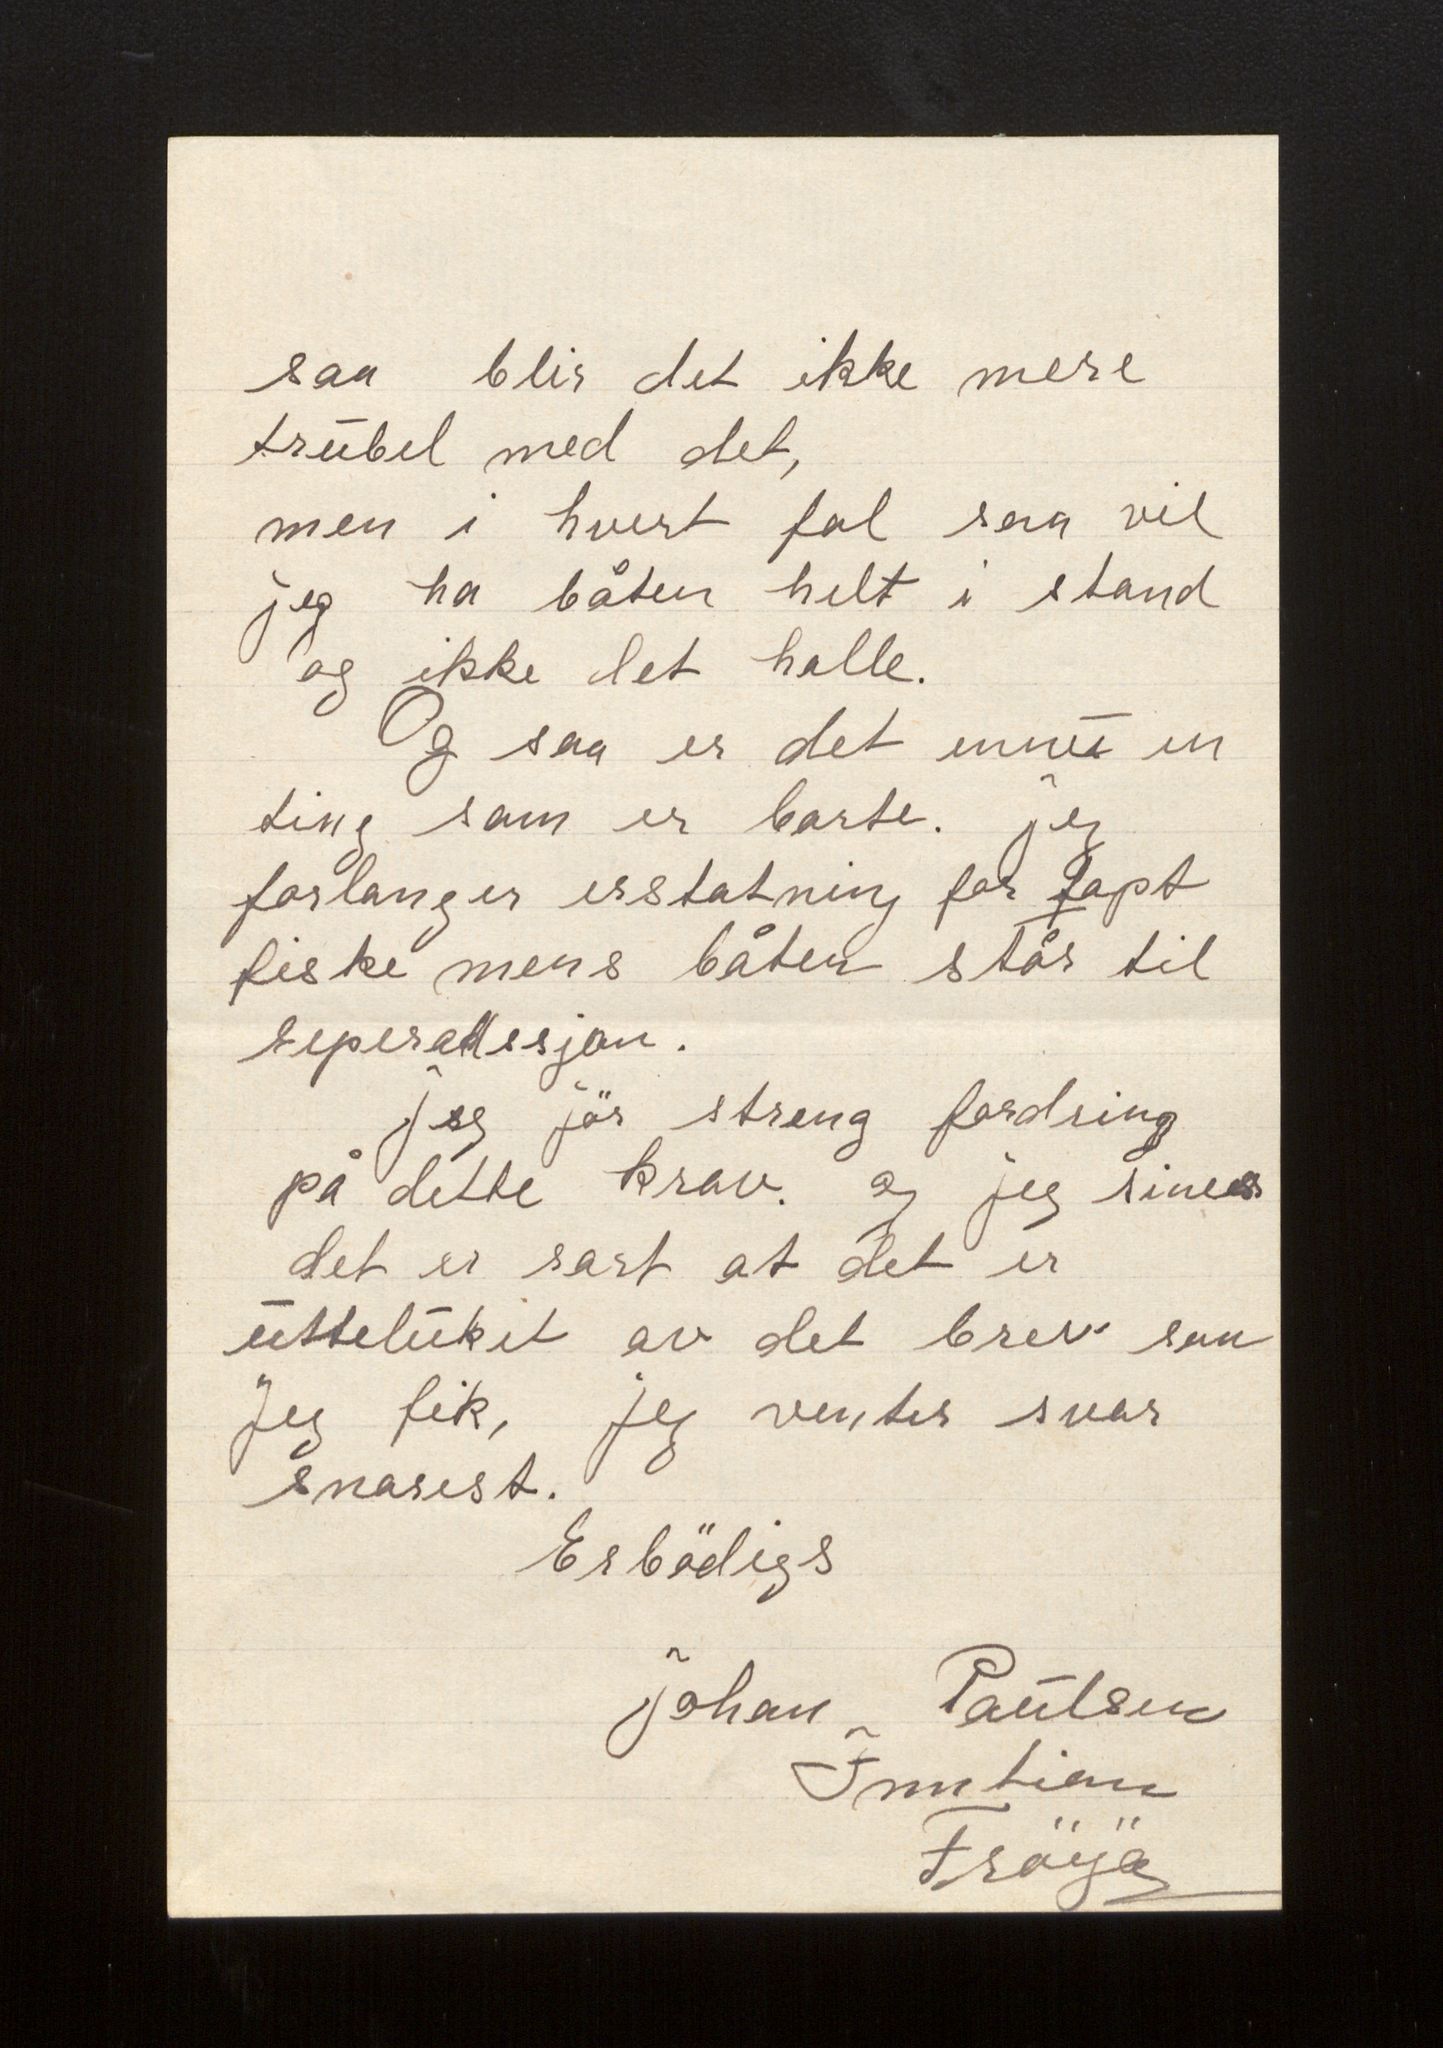 saa blir det ikke mere
trubel med det,
men i hvert fal saa vil
jeg ha båten helt i stand
og ikke det halle.
Og saa er det ennu en
ting som er borte. jeg
forlanger erstatning for tapt
fiske mens båten står til
reperassjon.
jeg jör streng fordring
på dette krav. og jeg sines
det er rart at det er
uttelukit av det brev som
jeg fik, jeg venter svar
snarest.
Erbödigs
Johan Paulsen
Inntian
Fröya